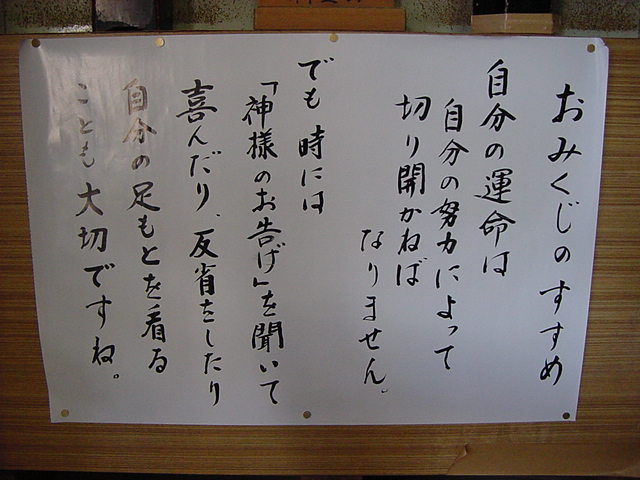 おみくじのすすめ
自分の運命は
自分の努力によって
切り開かねば
なりません。
でも時には
「神様のお告げ」を聞いて
喜んだり、反省をしたり
自分の足もとを看る
ことも大切ですね。